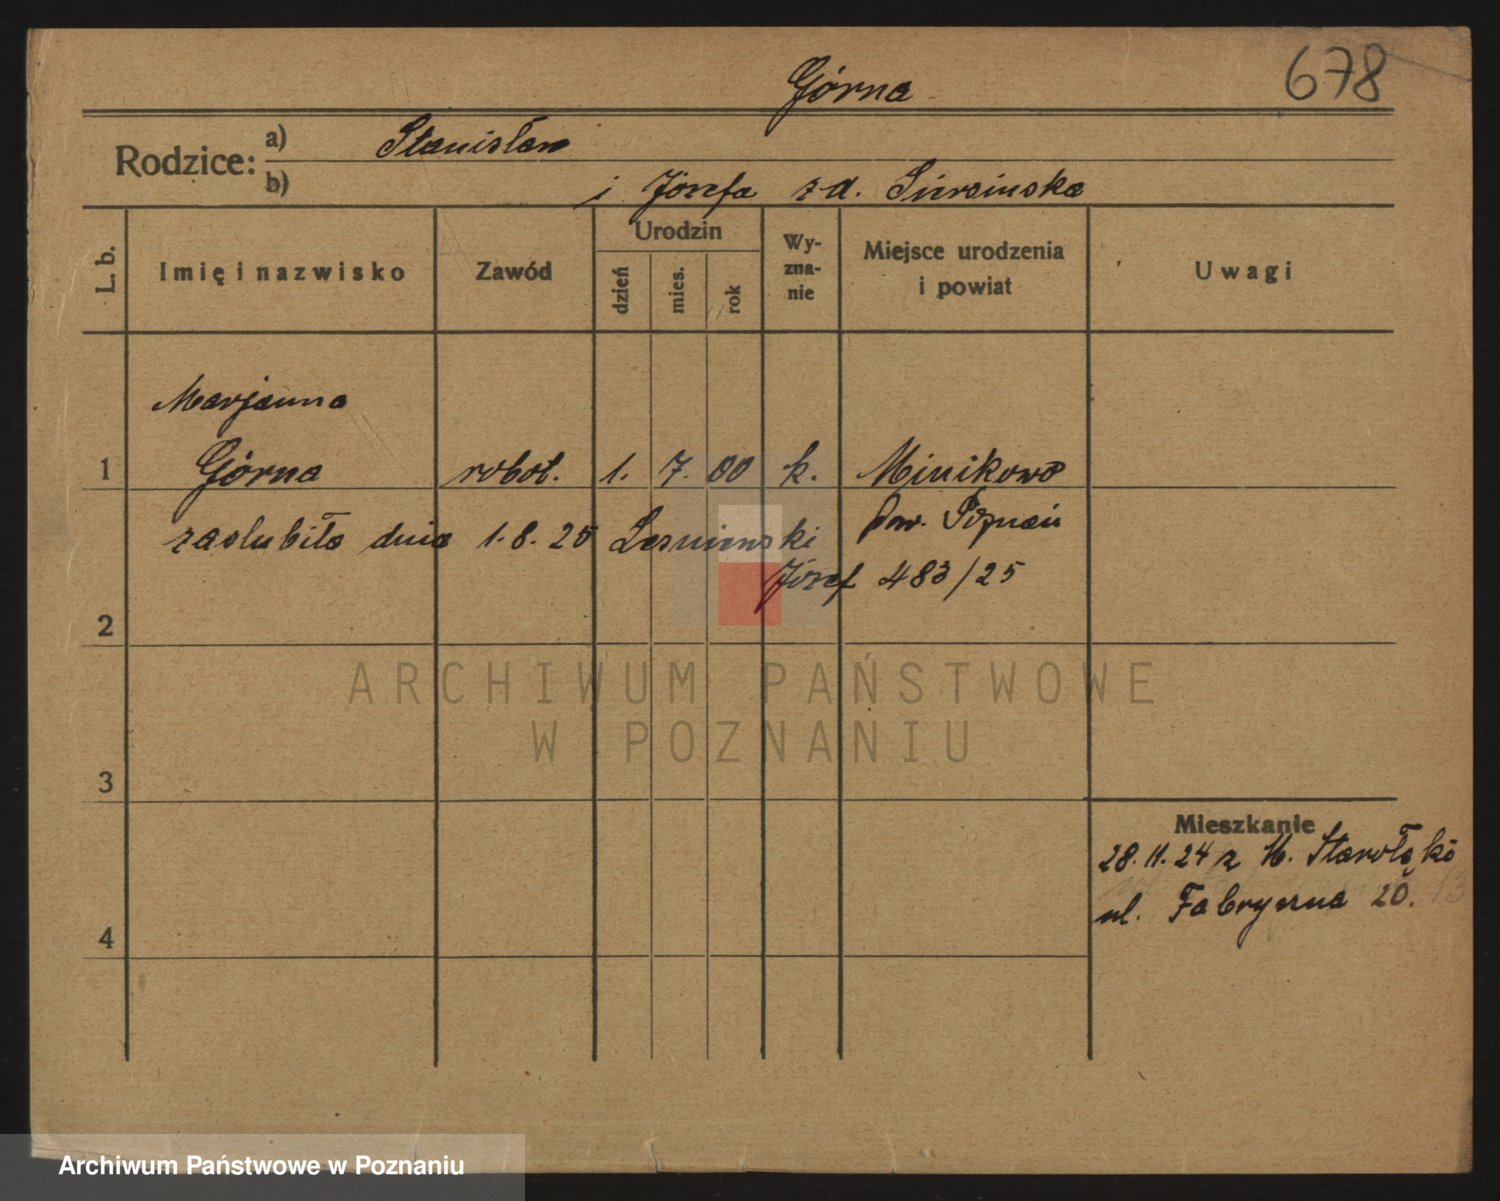 Górna 678
Rodzice: a) Stanisław
b) i Józefa z d.
L. b. Imię i nazwisko Zawód Urodzin dzień mies. rok Wy-zna-nie Miejsce urodzenia i powiat Uwagi
Marjanna
1 Górna robot. 1. 7. 00 k. Minikowo
pow. Poznań
zaślubiła dnia 1.8.25 Leśniewski
Józef 483/25
2
ARCHIWUM PAŃSTWOWE
W POZNANIU
3
Mieszkanie
28.11.24 z Starołęka
ul. Fabryczna 20.
4
Archiwum Państwowe w Poznaniu